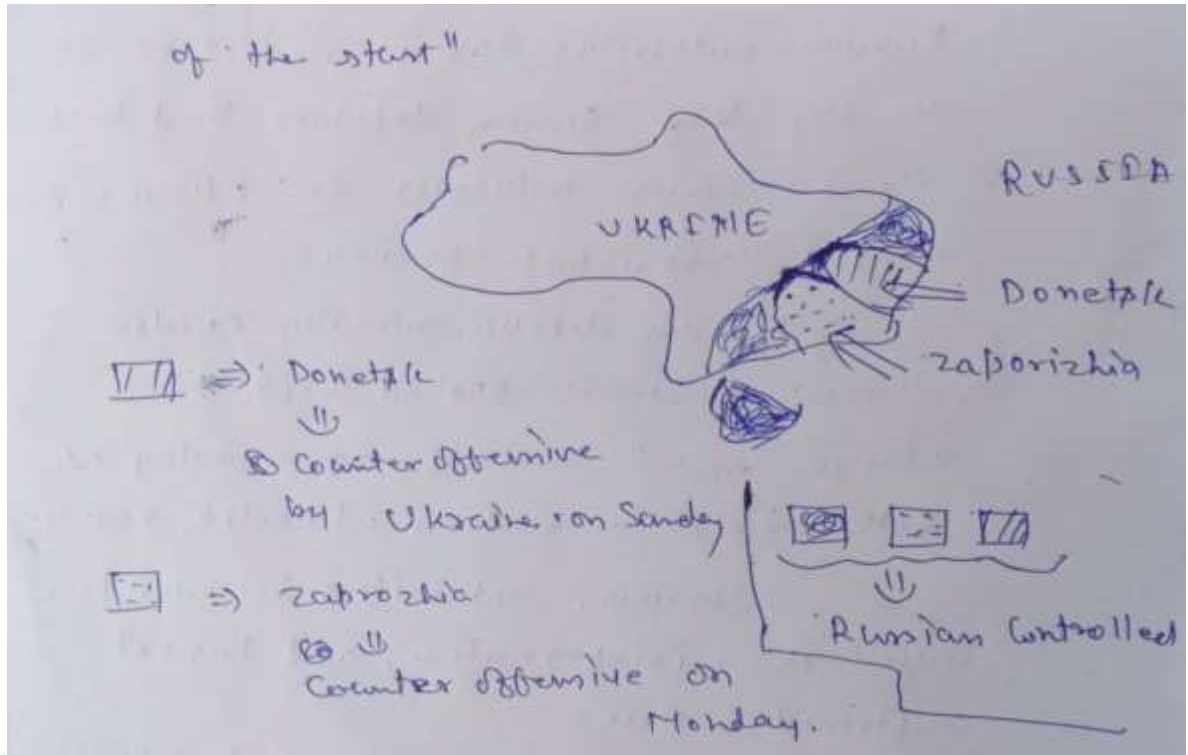 of the start"
RUSSIA
UKRAINE
Donetsk
zaporizhia
⇒ Donetsk
Counter offensive
by Ukraine on Sunday
⇒ zaprozhia
Counter offensive on
Monday.
Russian Controlled